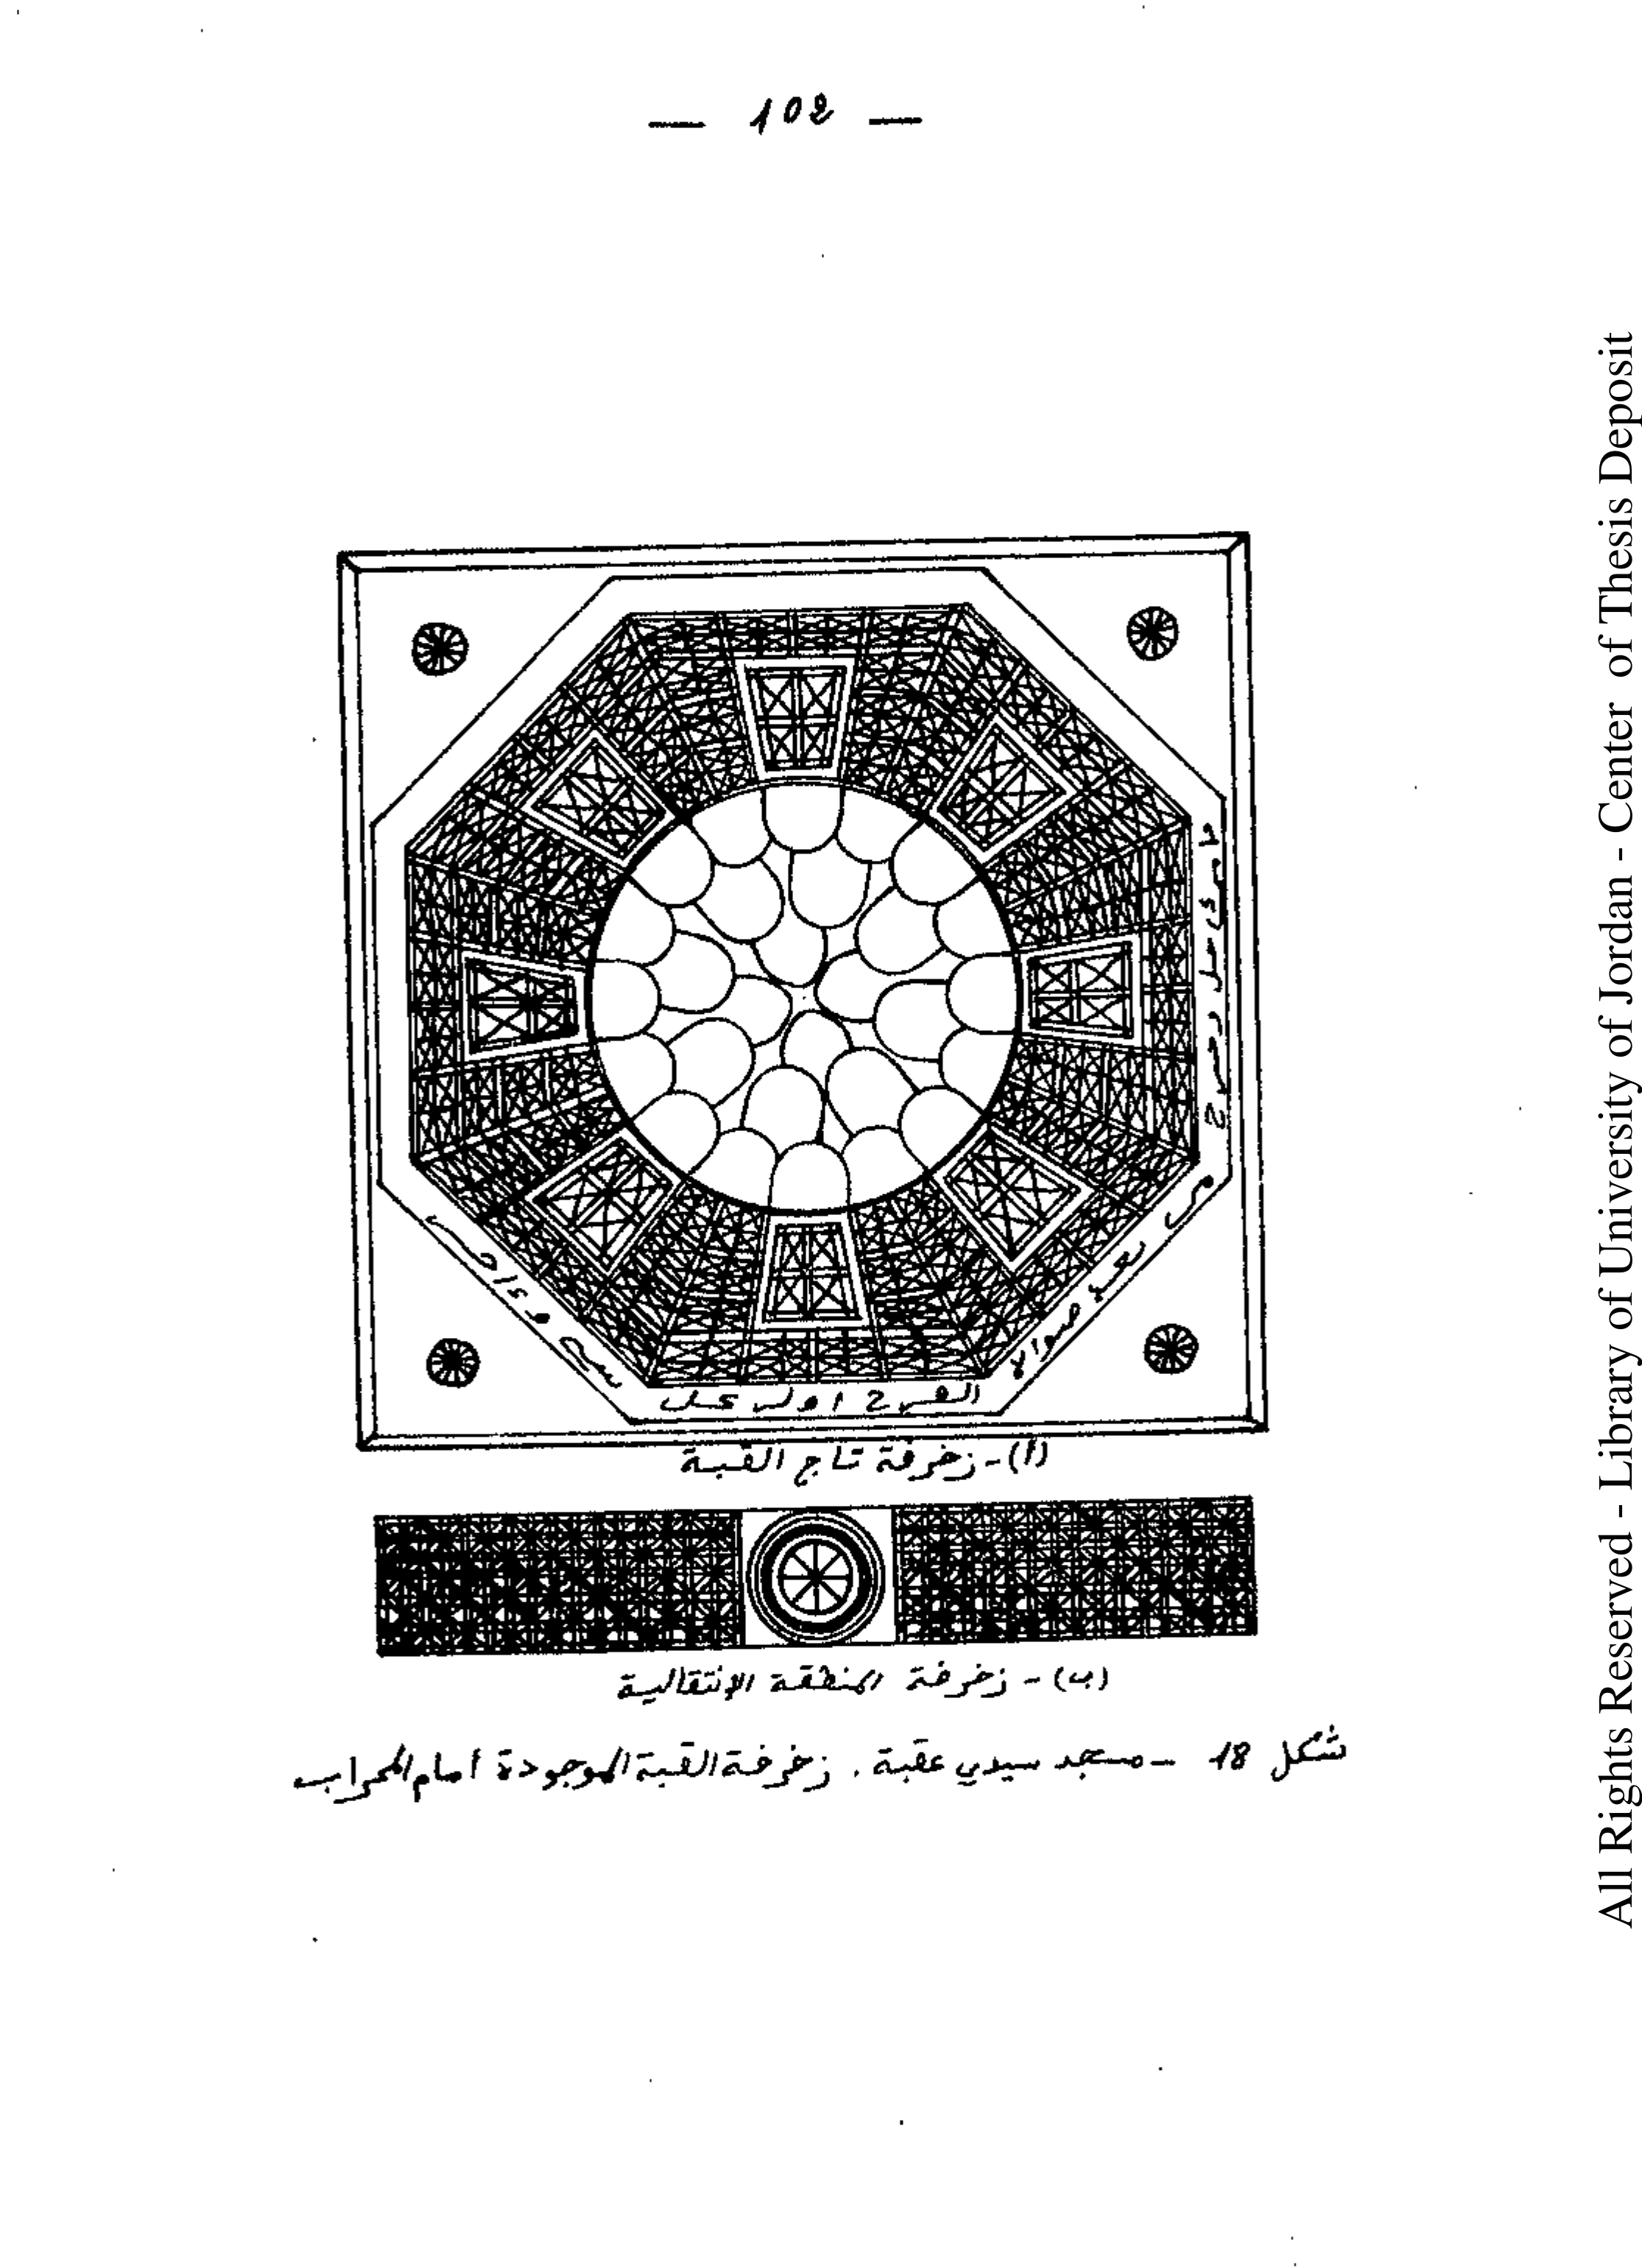 — 102 —
(أ) - زخرفة تاج القبة
(ب) - زخرفة المنطقة الإنتقالية
شكل 18 - مسجد سيدي عقبة . زخرفة القبة الموجودة أمام المحراب
All Rights Reserved - Library of University of Jordan - Center of Thesis Deposit